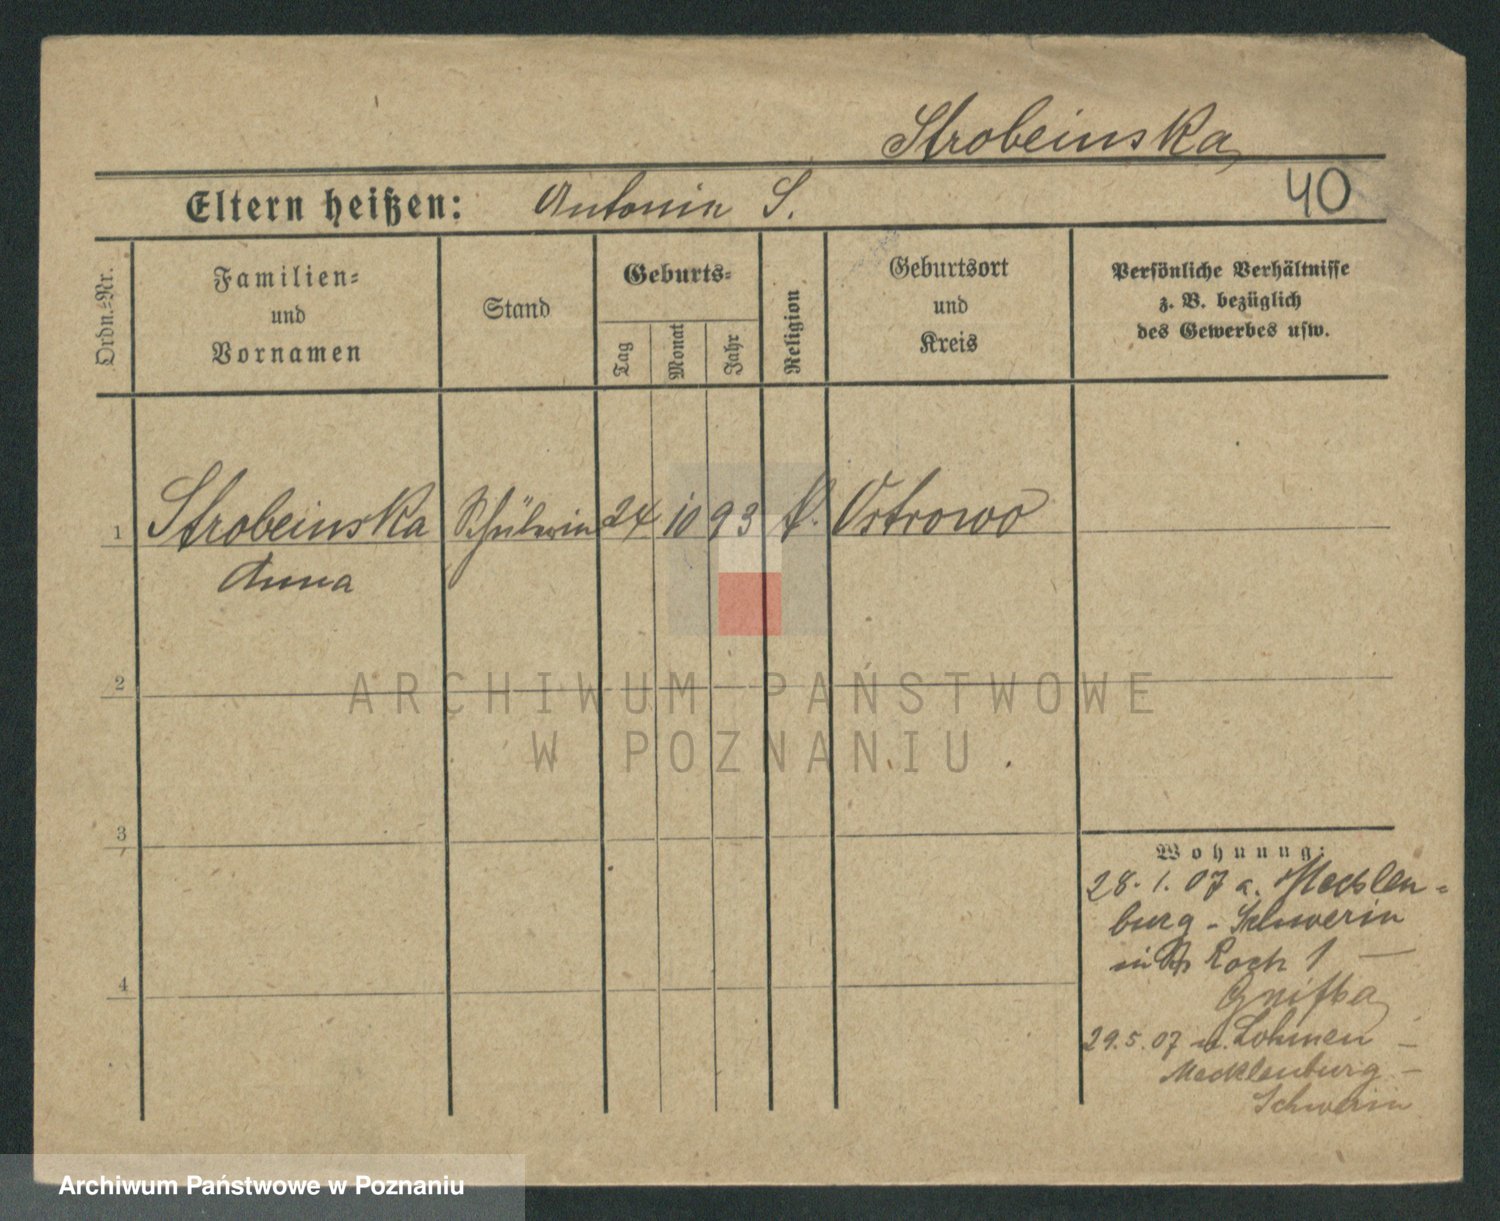 Strobeinska
Eltern heißen: Antonin S. 40
Ordn.-Nr.
Familien-
und
Vornamen
Stand
Geburts-
Tag
Monat
Jahr
Religion
Geburtsort
und
Kreis
Persönliche Verhältnisse
z. B. bezüglich
des Gewerbes usw.
1 Strobeinska Schülerin 24 10 93 k. Ostrowo
Anna
2
ARCHIWUM PAŃSTWOWE
W POZNANIU
3
Wohnung:
28. 1. 07 a. Mecklen-
burg-Schwerin
in St Roch 1 —
4
29.5.07 n. Lohmen —
Mecklenburg —
Schwerin
Archiwum Państwowe w Poznaniu